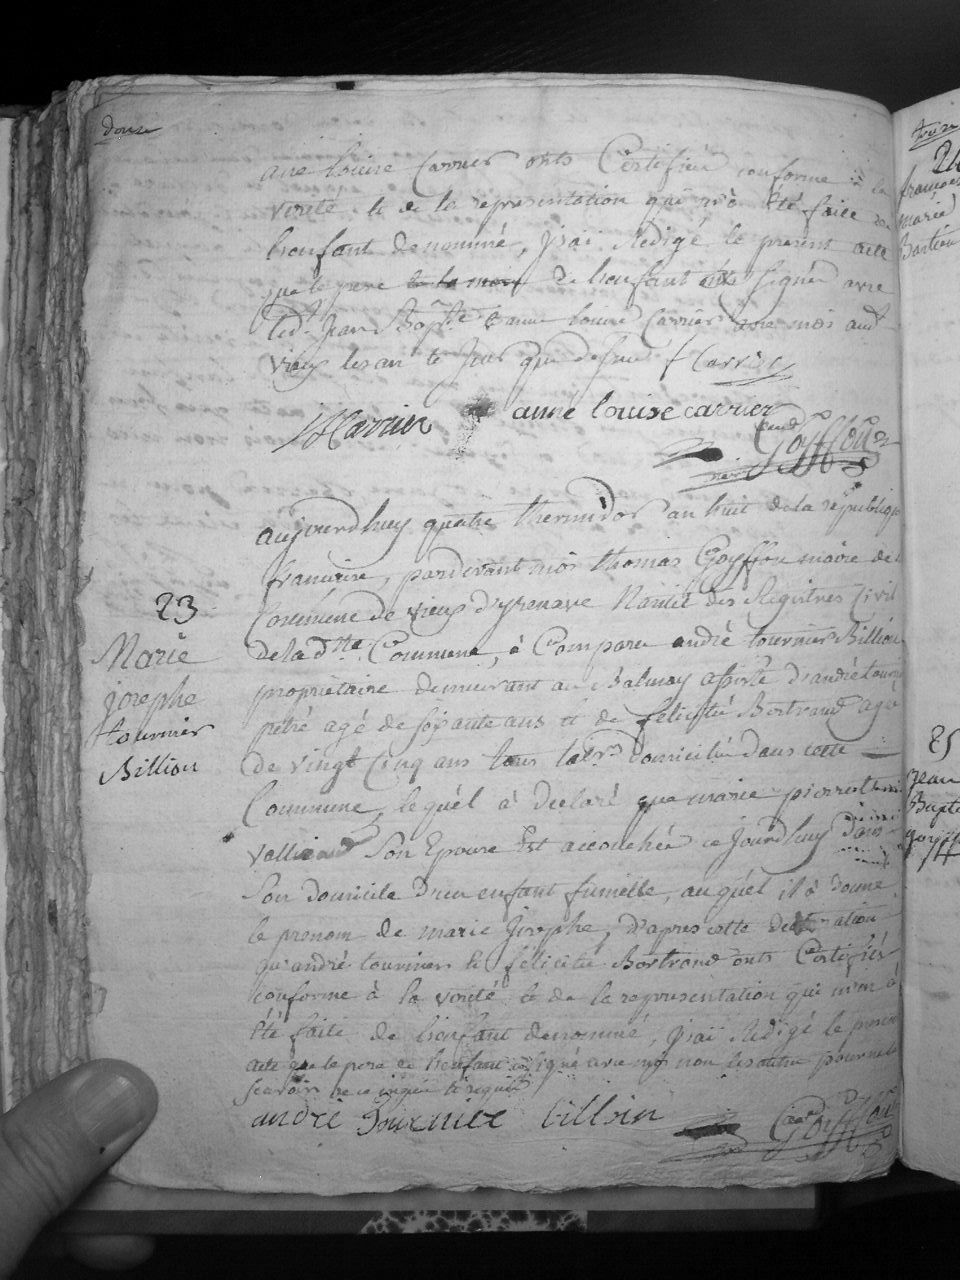 douze
anne louise Carrier onts Certifiéé conforme à la
verité & de la representation qui m'à été faite de
lienfant denommé, J'sai Redigé le present acte
que le pere de lienfant signée avec
led.t Jean Bap.te & anne louise Carrier avec moi aud
vieux les an & jour que dessus J Carrier
JB Carrier anne louise carrier
Goyffon
maire
aujourdhuy quatre thermidor an huit de la republique
francaise, pardevant moi thomas Goyffon maire de
Commune de vieux d'yzenave Nanti des Registres Civil
de la dtte Commune, à Comparu andré tournier Billion
propriétaire demeurant au Balmay assisté d'andré tourni
petré agé de soixante ans & de felicité Bertrand agé
de vingt Cinq ans tous labrs domicilié dans cette
Commune, lequél à declaré que marie pierrette
valliend son Epouse Est accouchée ce Jourdhuy dans
son domicile d'un enfant fumelle, auquél il à donné
le prenom de marie josephe, d'apres cette declaration
qu'andré tournier & felicité Bertrand onts Certifiés
conforme à la verité & de la representation qui m'en à
été faite de lienfant denommé, J'saii Redigé le present
acte que le pere de lienfant à signé avec moi non les autres pour ne le
scavoir de ce enquis & requis
andré tournier billion
Goyffon
23
Marie
josephe
tournier
Billion
treize
24
françois
marie
Bastien
25
Jean
Bapte
goyff